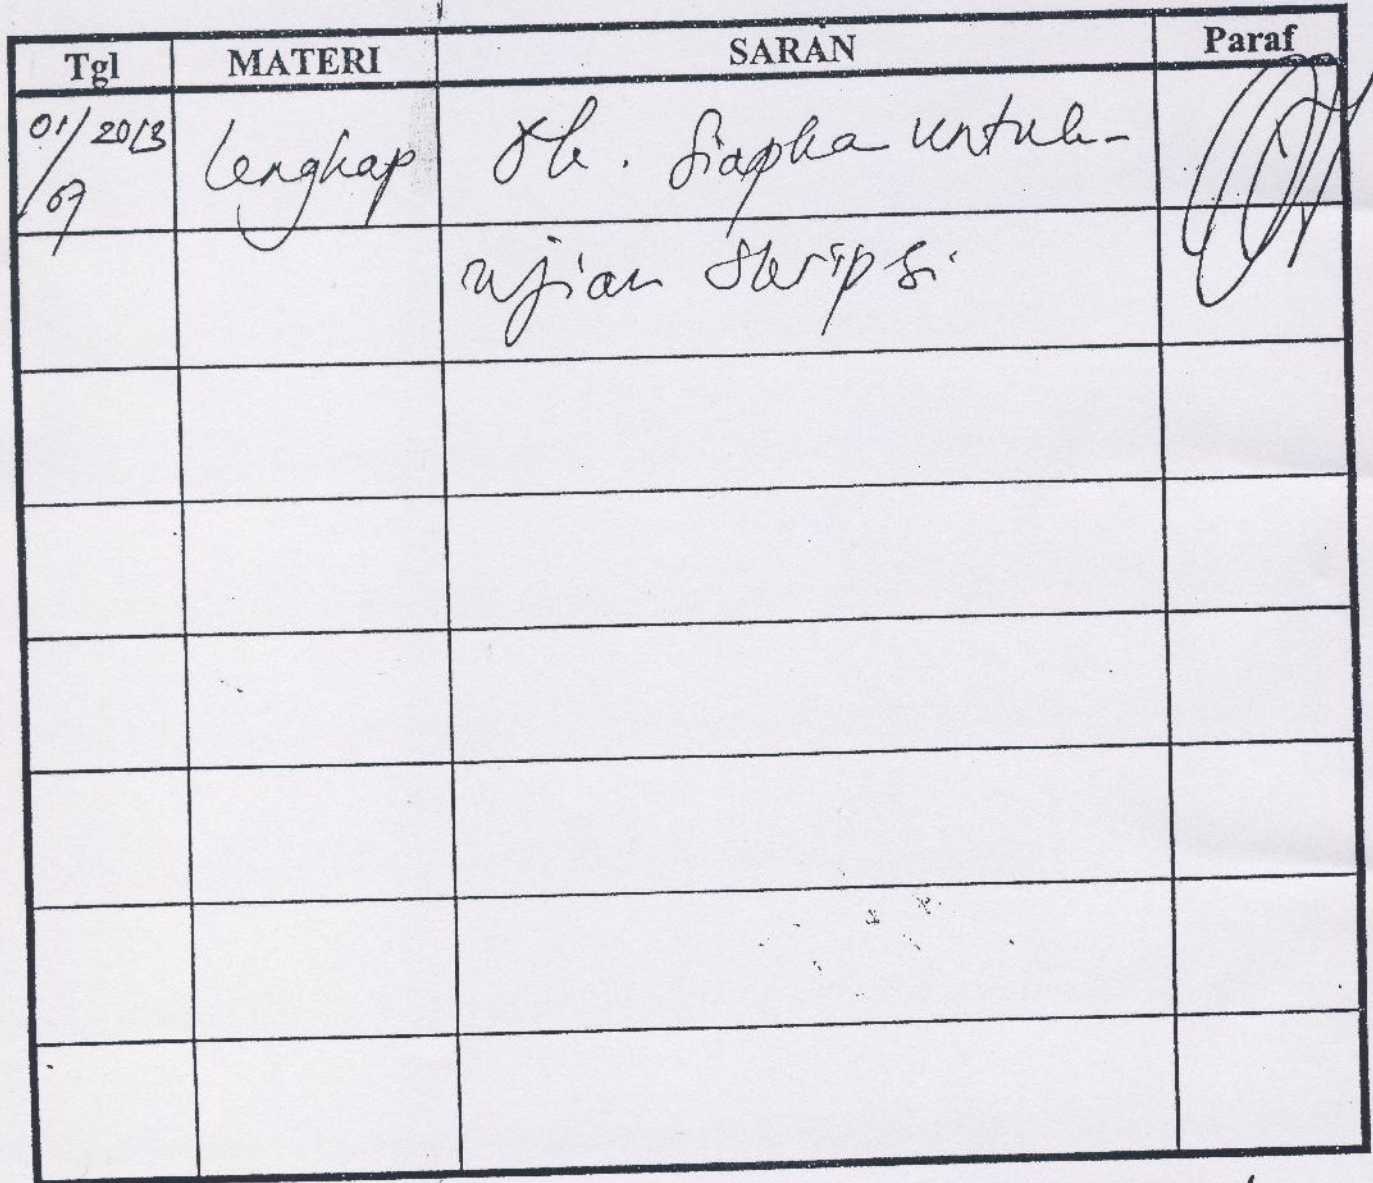 Tgl MATERI SARAN Paraf
01/07 2013 Lengkap Ok. Siapka untuk
ujian Skripsi